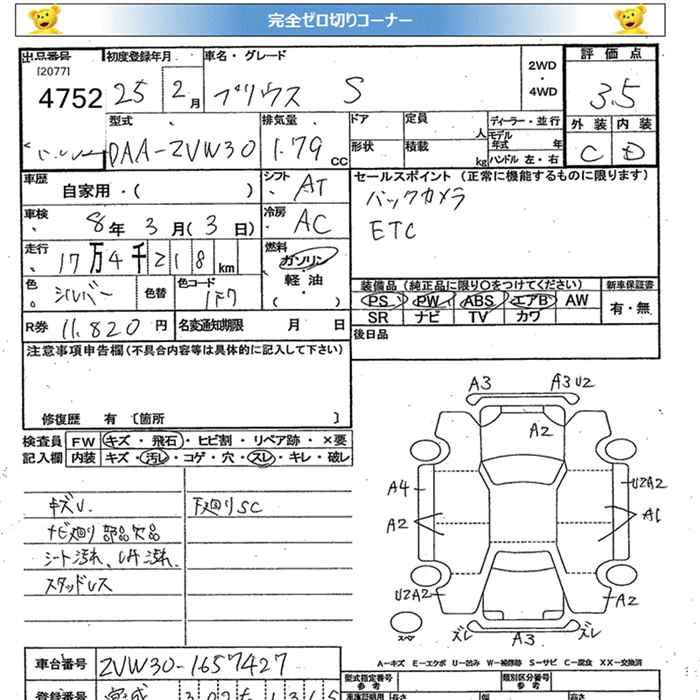 完全ゼロ切りコーナー
出品番号 初度登録年月 車名・グレード 2WD ・ 4WD 評価点
[2077]
4752 25 2月 プリウス S 3.5
型式 排気量 ドア 定員 人 ディーラー・並行 外装 内装
DAA-ZVW30 1.79 CC 形状 積載 kg モデル年式 年 ハンドル 左・右 C D
車歴 自家用・( ) シフト AT セールスポイント (正常に機能するものに限ります)
バックカメラ
車検 8年 3月(3日) 冷房 AC ETC
走行 17万4千218km 燃料 ガソリン
軽油
( )
色 シルバー 色替 色コード 1F7
装備品 (純正品に限り○をつけてください) 新車保証書
PS PW ABS エアB AW 有・無
SR ナビ TV カワ
R券 11,820円 名変通知期限 月 日
後日品
注意事項申告欄(不具合内容等は具体的に記入して下さい)
修復歴 有 [箇所 ]
検査員 FW キズ・飛石・ヒビ割・リペア跡・×要
記入欄 内装 キズ・汚レ・コゲ・穴・スレ・キレ・破レ
キズU. 下廻りSC
ナビ廻り部品欠品
シート汚れ、
スタッドレス
A3 A3U2
A2
A4 U2A2
A2 A1
U2A2 A2
スペア ズレ A3 ズレ
A=キズ E=エクボ U=凹み W=補修跡 S=サビ C=腐食 XX=交換済
車台番号 ZVW30-1657427
型式指定番号 参考 類別区分番号 参考
登録番号 宮城 302 1315
長さ 幅 高さ